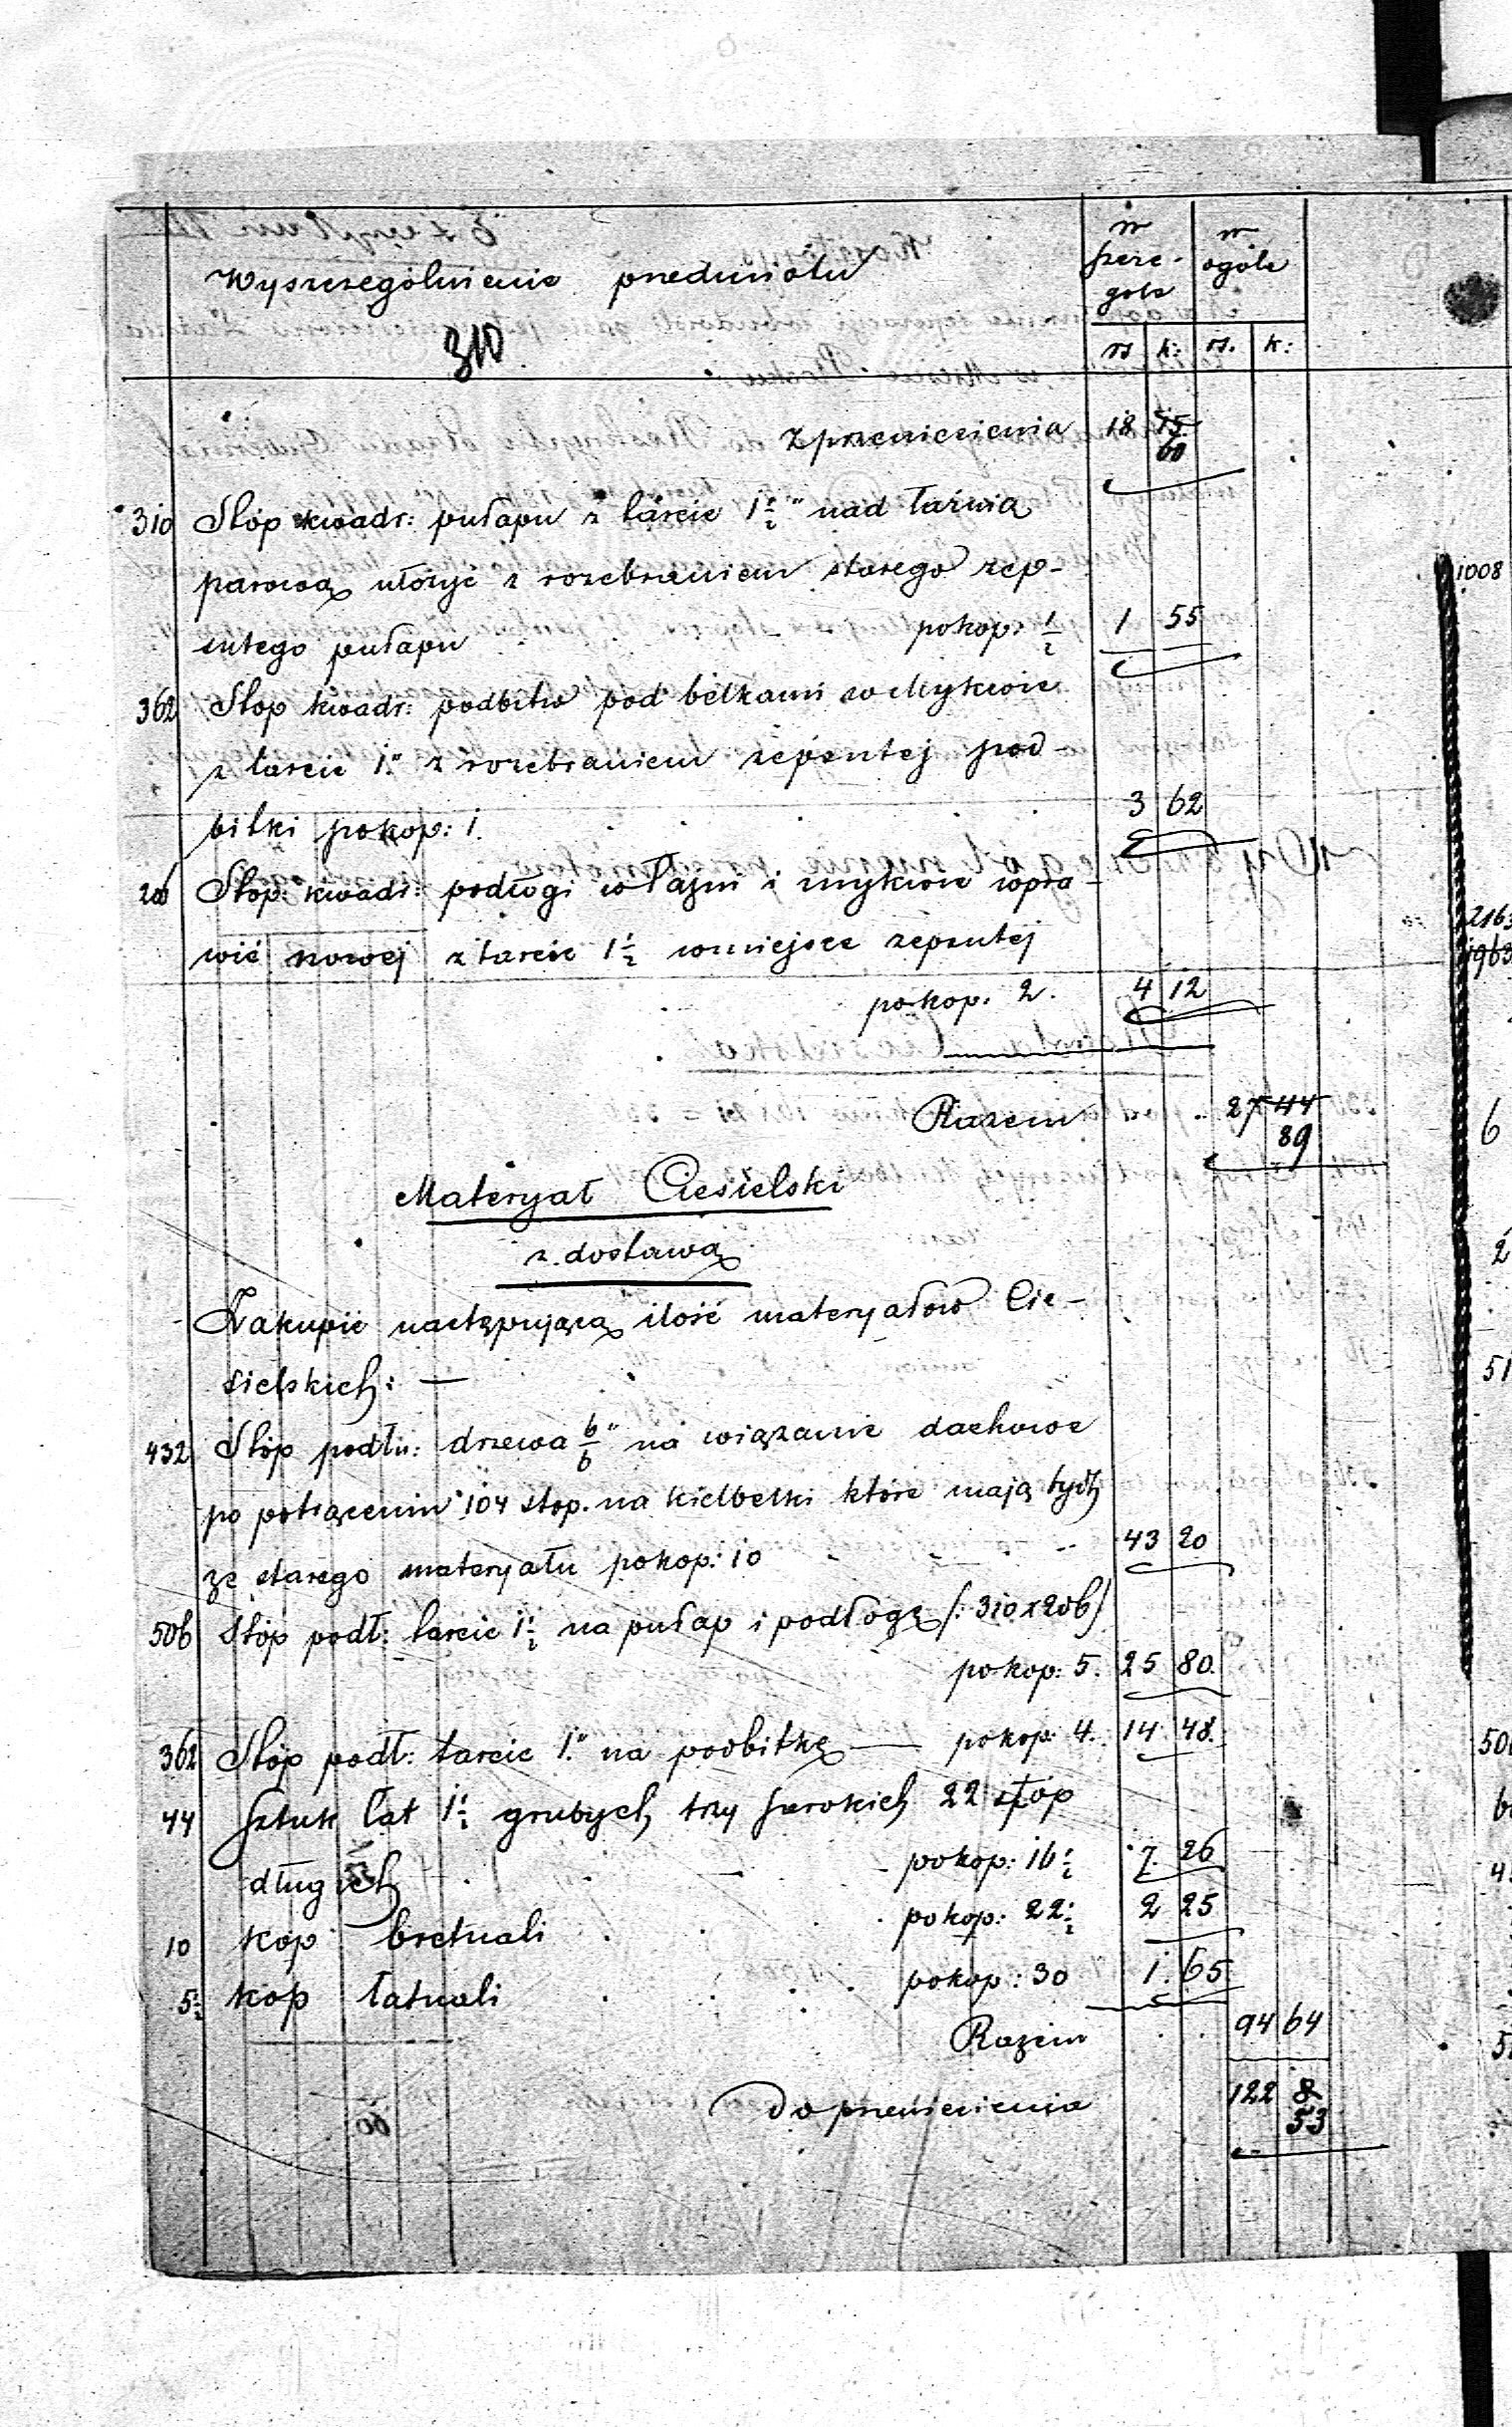 Wyszczególnienie przedmiotu
w szcze- w
góle ogóle
rs k: rs. k:
310
z przeniesienia 18 15
60
310 Stóp kwadr: pułapu z tarcic 1 1/2" nad łaźnią
parową ułożyć z rozebraniem starego zep-
sutego pułapu pokop: 1/2 1 55
362 Stop kwadr: podbitw pod belkami w Mykwie
z tarcic 1." z rozebraniem zepsutej pod-
bitki pokop: 1. 3 62
206 Stop: kwadr: podłogi w Łaźni i mykwie wpra-
wić nowej z tarcic 1 1/2 w miejsce zepsutej
pokop: 2. 4 12
Razem 27 44
89
Materyał Ciesielski
z dostawą
Zakupić następującą ilość materyałów Cie-
sielskich: —
432 Stóp podłu: drzewa 6/6" na wiązanie dachowe
po potrąceniu 104 stop. na kielbelki które mają bydź
ze starego materyału pokop: 10 43 20
506 Stóp podł: tarcic 1 1/2 na pułap i podłogę /: 310 x 206/
pokop: 5. 25 80.
362 Stóp podł: tarcic 1." na podbitkę — pokop: 4. 14 48.
44 Sztuk łat 1 1/2 grubych, trzy szerokich 22 stóp
długich pokop: 16 1/2 7. 26
10 kop bretnali pokop: 22 1/2 2 25
5 1/2 kop łatnali pokop: 30 1. 65
Razem 94 64
Do przeniesienia 122 8
53
1008
2163
1963
6
2
51